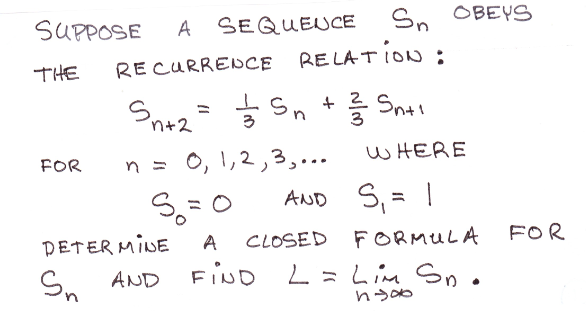 SUPPOSE A SEQUENCE Sₙ OBEYS
THE RECURRENCE RELATION :
Sₙ₊₂ = 1/3 Sₙ + 2/3 Sₙ₊₁
FOR n = 0, 1, 2, 3, ... WHERE
S₀ = 0 AND S₁ = 1
DETERMINE A CLOSED FORMULA FOR
Sₙ AND FIND L = Lim n→∞ Sₙ .